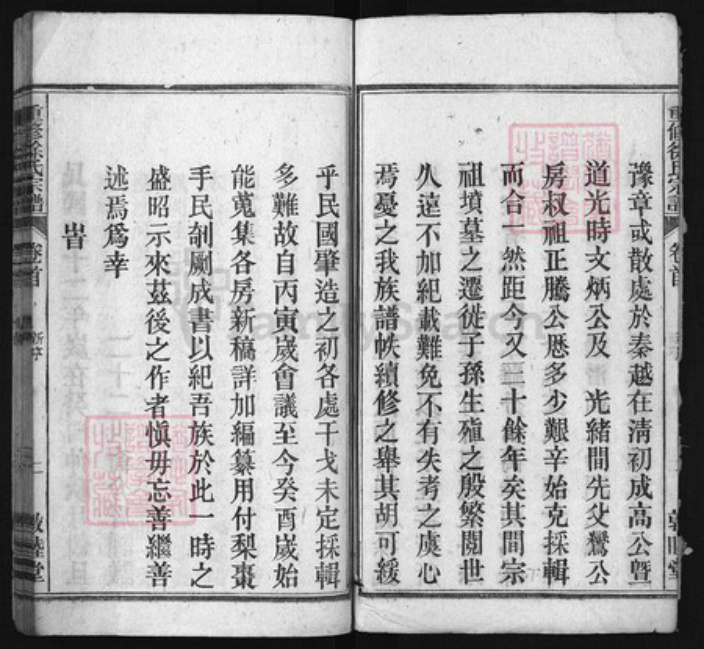 豫章或散處於秦越在淸初成高公曁
道光時文炳公及　光緒間先父鸞公
房叔祖正騰公歷多少艱辛始克採輯
而合一然距今又三十餘年矣其間宗
祖墳墓之遷徙子孫生殖之殷繁閱世
久遠不加紀載難免不有失考之虞心
焉憂之我族譜帙續修之舉其胡可緩
乎民國肇造之初各處干戈未定採輯
多難故自丙寅歲會議至今癸酉歲始
能蒐集各房新稿詳加編纂用付梨棗
手民剞劂成書以紀吾族於此一時之
盛昭示來茲後之作者愼毋忘善繼善
述焉爲幸
旹
重修徐氏宗譜
卷首
新序
七
敦睦堂
FamilySearch